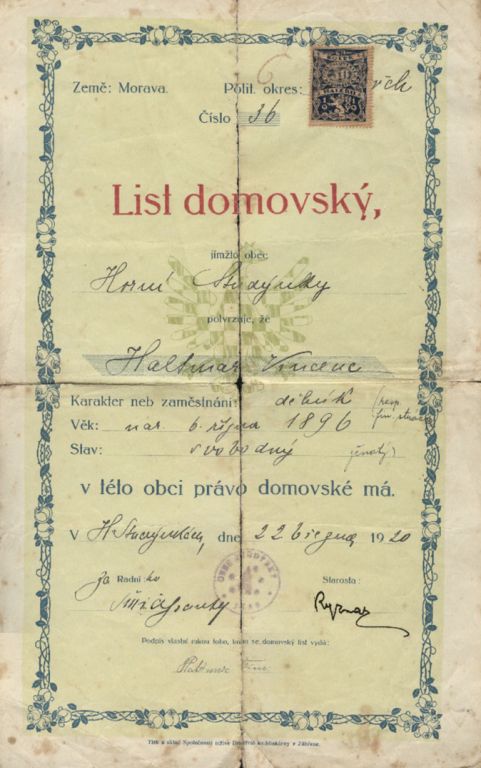 Země: Morava. Polit. okres:
Číslo 36
List domovský,
jímžto obec
Horní Studýnky
potvrzuje, že
Haltmar Vincenc
Karakter neb zaměstnání: dělník (resp.
Věk: nar. 6. října 1896 fin. stráže
Stav: svobodný (ženatý)
v této obci právo domovské má.
V H Studýnkách, dne 22 března 1920
Za Radní: ho Starosta:
Ryznar
Podpis vlastní rukou toho, komu se domovský list vydá:
Haltmar Vinc.
Tisk a sklad Společnosti
knihtiskárny v Zábřeze.